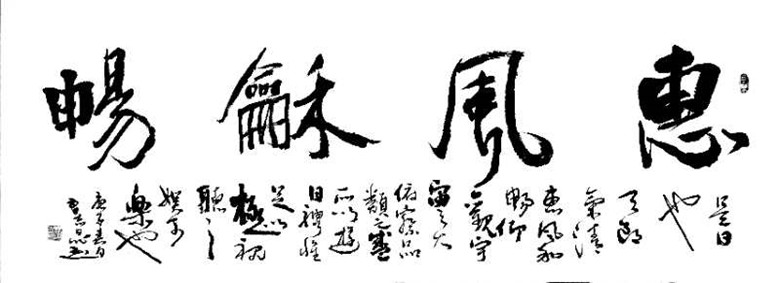 惠風龢暢
是日
也
天朗
氣清
惠風和
暢仰
觀宇
宙之大
俯察品
類之盛
所以遊
目騁懷
足以
極視
聽之
娛
樂也
庚子春月